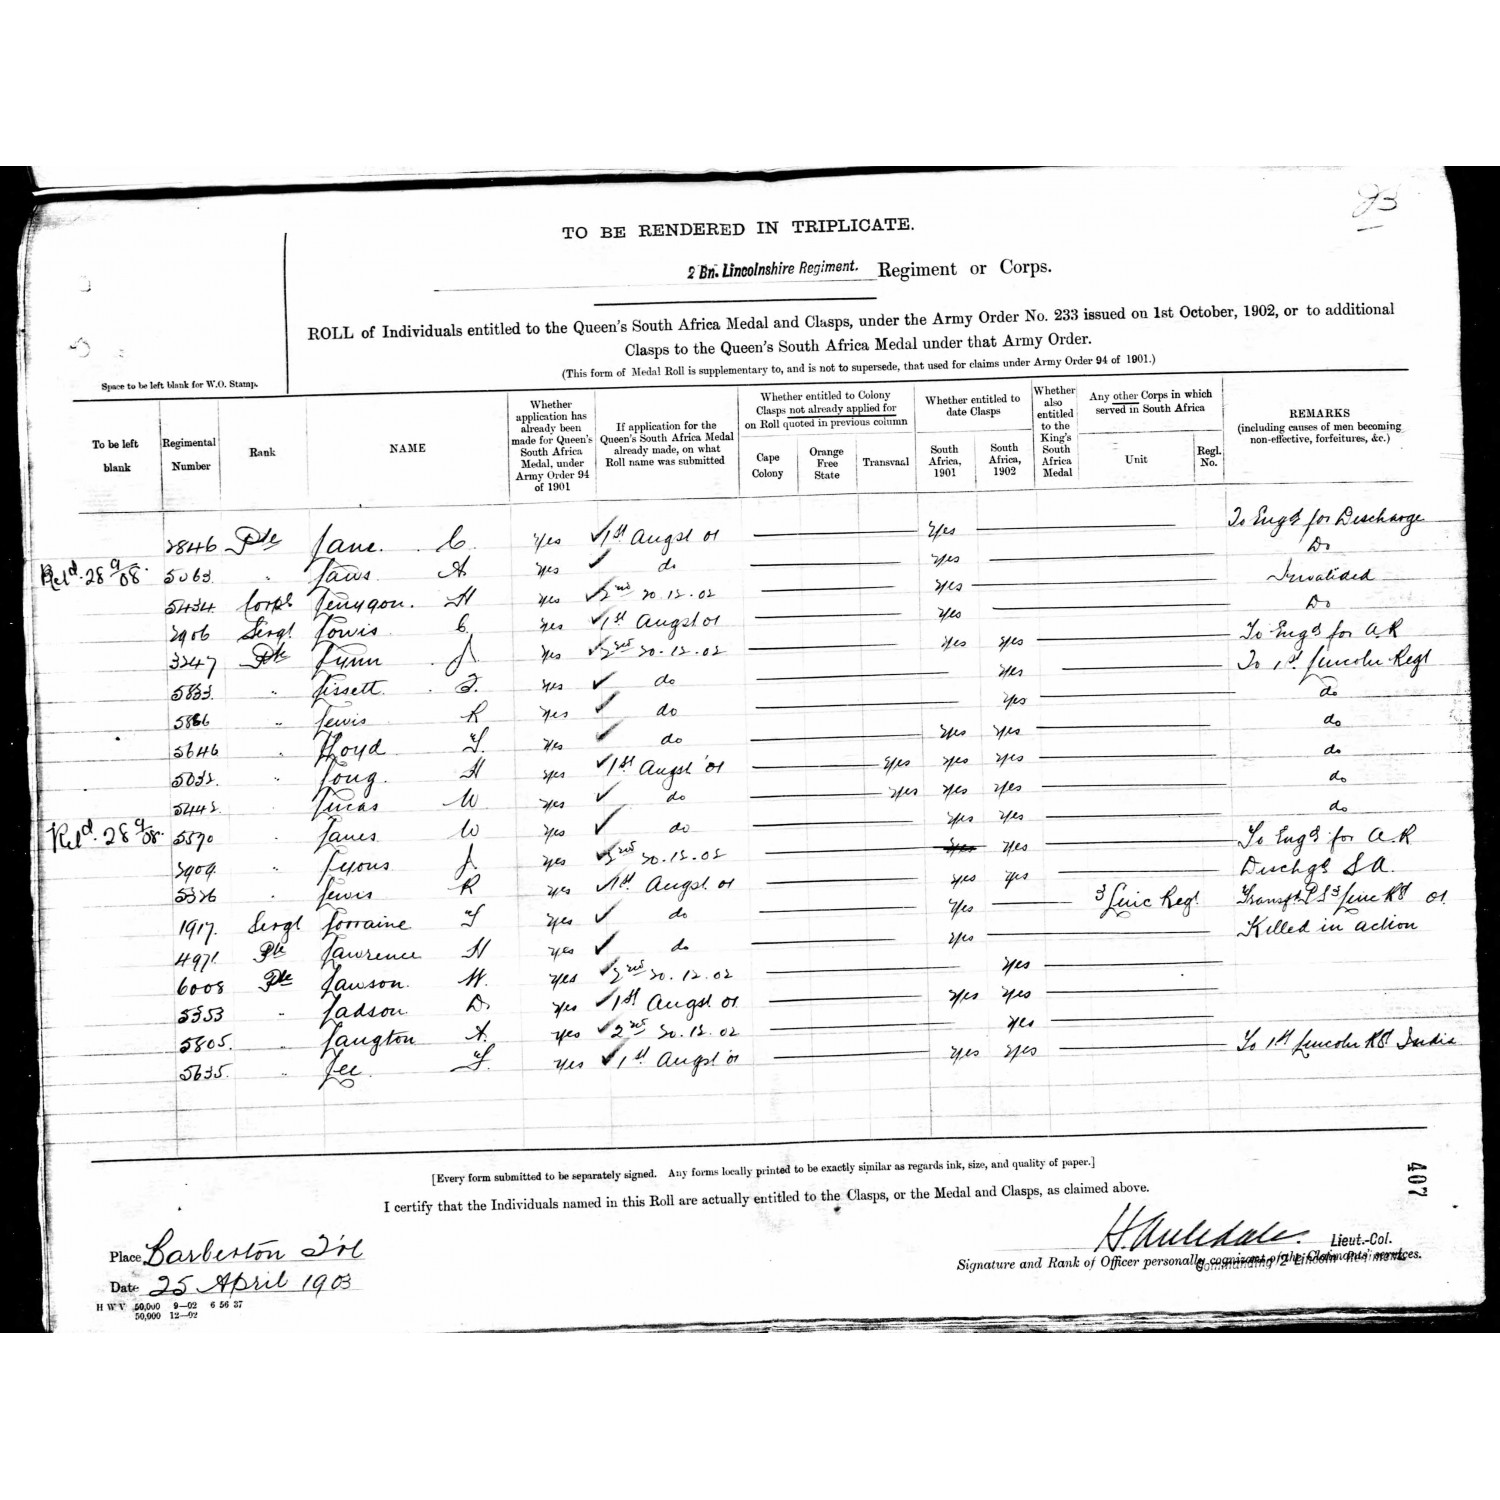 23
TO BE RENDERED IN TRIPLICATE.
2 Bn. Lincolnshire Regiment. Regiment or Corps.
ROLL of Individuals entitled to the Queen's South Africa Medal and Clasps, under the Army Order No. 233 issued on 1st October, 1902, or to additional
Clasps to the Queen's South Africa Medal under that Army Order.
(This form of Medal Roll is supplementary to, and is not to supersede, that used for claims under Army Order 94 of 1901.)
Space to be left blank for W.O. Stamp.
To be left blank
Regimental Number
Rank
NAME
Whether application has already been made for Queen's South Africa Medal, under Army Order 94 of 1901
If application for the Queen's South Africa Medal already made, on what Roll name was submitted
Whether entitled to Colony Clasps not already applied for on Roll quoted in previous column
Cape Colony
Orange Free State
Transvaal
Whether entitled to date Clasps
South Africa, 1901
South Africa, 1902
Whether also entitled to the King's South Africa Medal
Any other Corps in which served in South Africa
Unit
Regl. No.
REMARKS
(including causes of men becoming non-effective, forfeitures, &c.)
2846 Pte Lane. C. Yes 1st Augst 01 Yes To Engd for Discharge
Reld. 28/9/08. 5063 " Laws A Yes do Yes Do
5434 Corpl H Yes 2nd 30.12.02 Yes Invalided
2906 Sergt Lowis C. Yes 1st Augst 01 Yes Do
3247 Pte Lynn J Yes 2nd 30.12.02 Yes Yes To Engd for A.R
5833 " Lissett Yes do Yes To 1st Lincoln Regt
5866 " Lewis R Yes do Yes do
5646 " Lloyd Yes do Yes Yes do
5032 " Long H Yes 1st Augst '01 Yes Yes Yes do
5442 Lucas W Yes do Yes Yes Yes do
Reld. 28/9/08. 5570 " Lanes W Yes do Yes Yes do
2909 " Lyons J. Yes 2nd 30.12.02 Yes Yes To Engd for A.R
5326 " Lewis R Yes 1st Augst 01 Yes Yes Dischgd S.A.
1917. Sergt Lorraine Yes do Yes 3 Linc Regt 01
4971 Pte Lawrence H Yes do Yes Killed in action
6008 Pte Lawson W. Yes 2nd 30.12.02 Yes
5353 " Ladson D. Yes 1st Augst 01 Yes Yes
5805. " Langton A. Yes 2nd 30.12.02 Yes
5635. " Lee Yes 1st Augst '01 Yes Yes To 1st Lincoln Rgt India
[Every form submitted to be separately signed. Any forms locally printed to be exactly similar as regards ink, size, and quality of paper.]
I certify that the Individuals named in this Roll are actually entitled to the Clasps, or the Medal and Clasps, as claimed above.
407
Place Barberton Tvl
Lieut.-Col.
Signature and Rank of Officer personally cognizant of the Claimants' services.
Commanding 2 Lincoln Regiment.
Date 25 April 1903
H W V 50,000 9—02 6 56 37
50,000 12—02